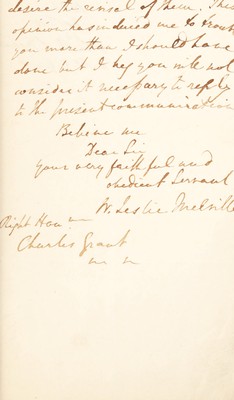 desire the censel of them. This
opinion has induced me to trouble
you more than I should have
done but I beg you will not
consider it necessary to reply
to the present communication
Believe me
Dear Sir
your very faithful and
obedient Servant
W. Leslie Melville
Right Hon
Charles Grant